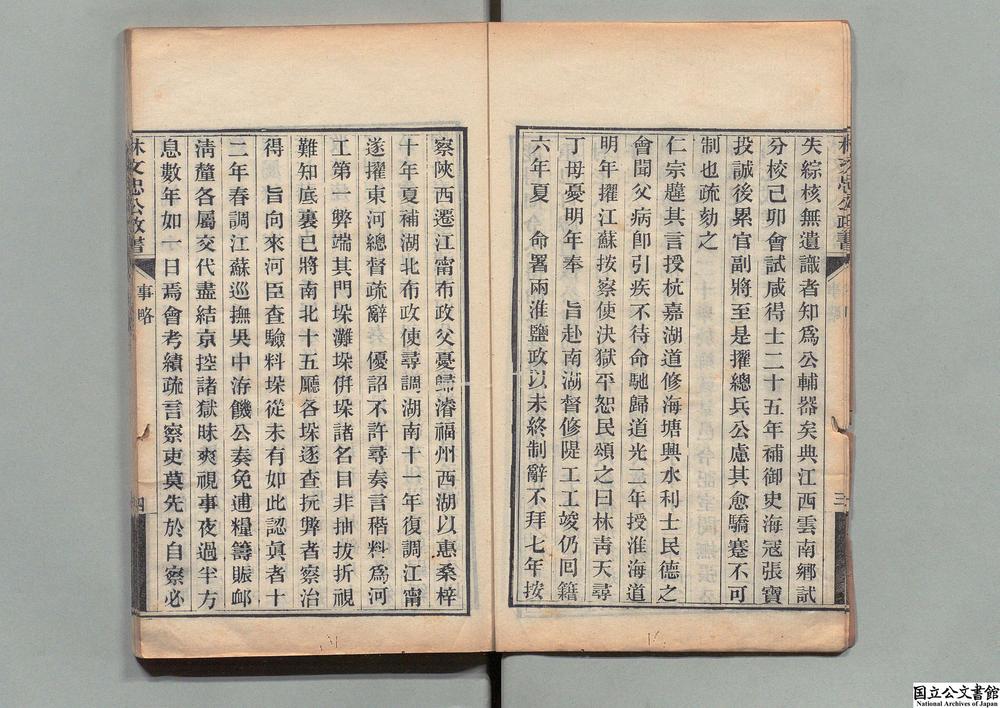 失綜核無遺識者知爲公輔器矣典江西雲南鄉試
分校己卯會試咸得士二十五年補御史海寇張寶
投誠後累官副將至是擢總兵公慮其愈驕蹇不可
制也疏劾之
仁宗韙其言授杭嘉湖道修海塘興水利士民德之
會聞父病卽引疾不待命馳歸道光二年授淮海道
明年擢江蘇按察使決獄平恕民頌之曰林靑天尋
丁母憂明年奉 旨赴南湖督修隄工工竣仍回籍
六年夏 命署兩淮鹽政以未終制辭不拜七年按
察陝西遷江甯布政父憂歸濬福州西湖以惠桑梓
十年夏補湖北布政使尋調湖南十一年復調江甯
遂擢東河總督疏辭 優詔不許尋奏言稭料爲河
工第一弊端其門垛灘垛併垛諸名目非抽拔折視
難知底裏已將南北十五廳各垛逐查抏弊者察治
得 旨向來河臣查驗料垛從未有如此認眞者十
二年春調江蘇巡撫吳中洊饑公奏免逋糧籌賑䘏
淸釐各屬交代盡結京控諸獄昧爽視事夜過半方
息數年如一日焉會考績疏言察吏莫先於自察必
林文忠公政書
事略
四
林文忠公政書
三
国立公文書館
National Archives of Japan